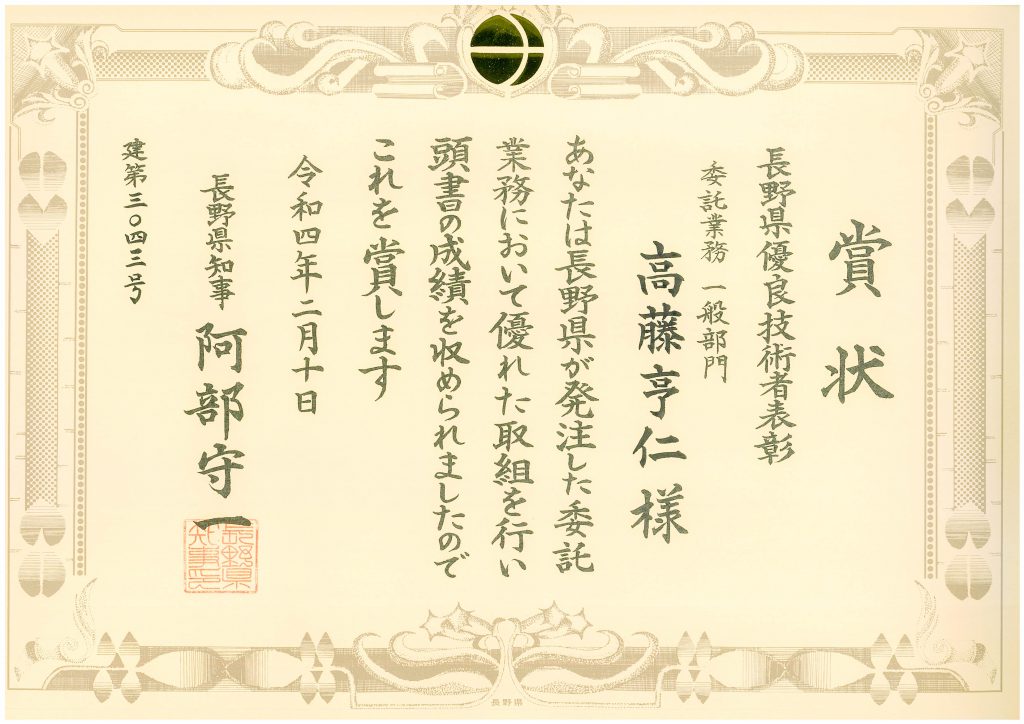 賞状
長野県優良技術者表彰
委託業務 一般部門
高藤亨仁様
あなたは長野県が発注した委託
業務において優れた取組を行い
頭書の成績を収められましたので
これを賞します
令和四年二月十日
長野県知事 阿部守一
長野県知事印
建第三〇四三号
長野県